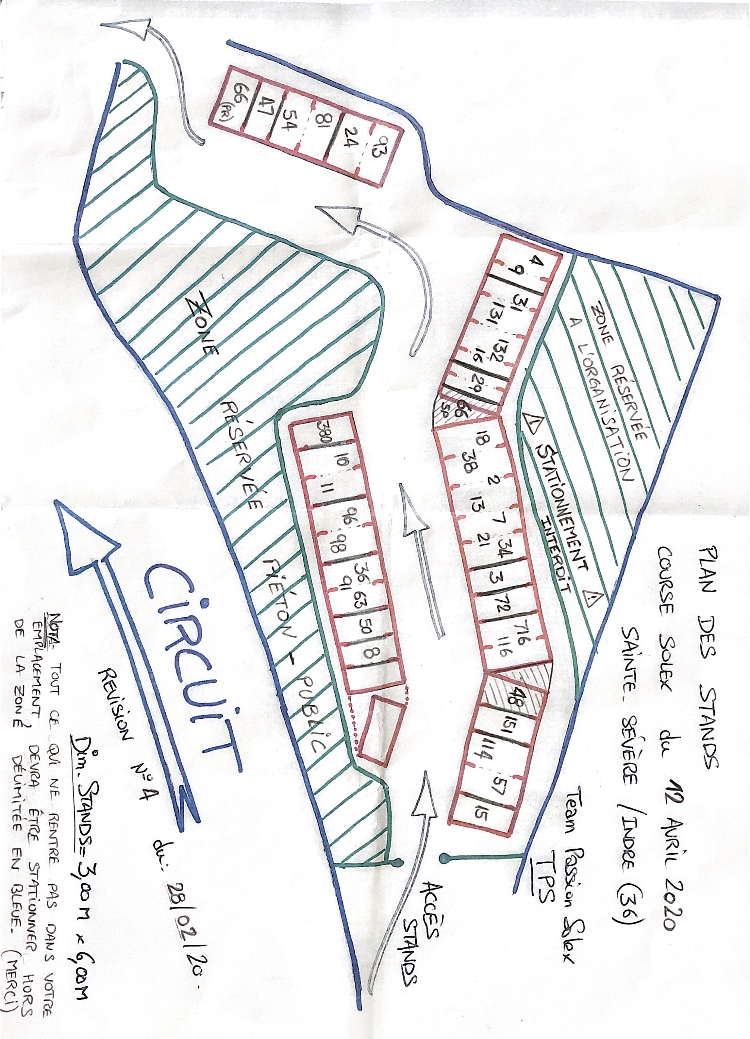 PLAN DES STANDS
COURSE SOLEX du 12 AVRIL 2020
SAINTE SÉVÈRE / INDRE (36)
Team Passion Solex
TPS
ZONE RÉSERVÉE
A L'ORGANISATION
STATIONNEMENT
INTERDIT
66 (PR)
47
54
81
24
93
4
9
31
131
132
16
29
66
56
18
38
2
13
7
21
34
3
72
716
116
48
151
114
57
15
380
10
11
96
98
36
91
63
50
8
ZONE RÉSERVÉE PIÉTON - PUBLIC
ACCÈS
STANDS
CIRCUIT
REVISION N°4 du: 28/02/20.
Dim. STANDS = 3,00M x 6,00M
NOTA: TOUT CE QUI NE RENTRE PAS DANS VOTRE
EMPLACEMENT, DEVRA ÊTRE STATIONNER HORS
DE LA ZONE DÉLIMITÉE EN BLEUE. (MERCI)